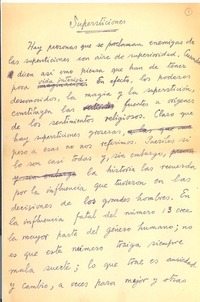 Supersticiones
Hay personas que se proclaman enemigas de
las supersticiones con aire de superioridad. Cuando
dicen así uno piensa que han de tener
poca vida interior. En efecto, los poderes
desconocidos, la magia y la superstición,
constituyen las fuentes u orígenes
de los sentimientos religiosos. Claro que
hay supersticiones groseras,
pero a esas no nos referimos. Pueriles sí
lo son casi todas y, sin embargo,
la historia las recuerda
por la influencia que tuvieron en las
decisiones de los grandes hombres. En
la influencia fatal del número 13 cree
la mayor parte del género humano; no
es que este número traiga siempre
mala suerte; lo que trae es ansiedad
y cambio, a veces para mejor y otras